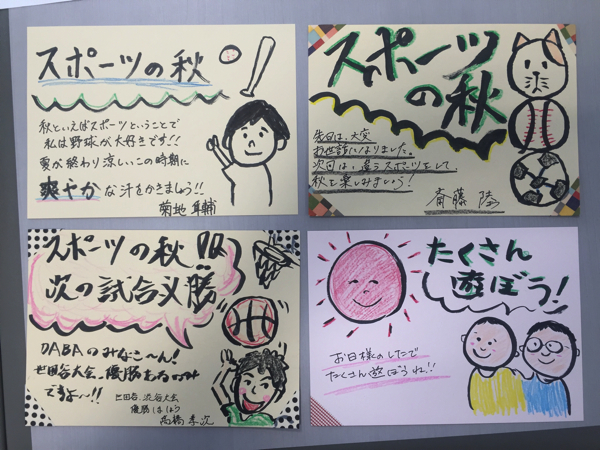 スポーツの秋
秋といえばスポーツということで
私は野球が大好きです!!
夏が終わり涼しいこの時期に
爽やかな汗をかきましょう!!
菊地 隼輔
スポーツ
の秋
先日は、大変
お世話になりました。
次回は、違うスポーツをして
秋を楽しみましょう!
斎藤 陸
スポーツの秋!!
次の試合必勝
DABAのみなこ〜ん!
世田谷大会、優勝
ですよ〜!!
世田谷、渋谷大会
優勝しましょう
高橋 孝次
たくさん
遊ぼう!
お日様のしたで
たくさん遊ぼうね!!